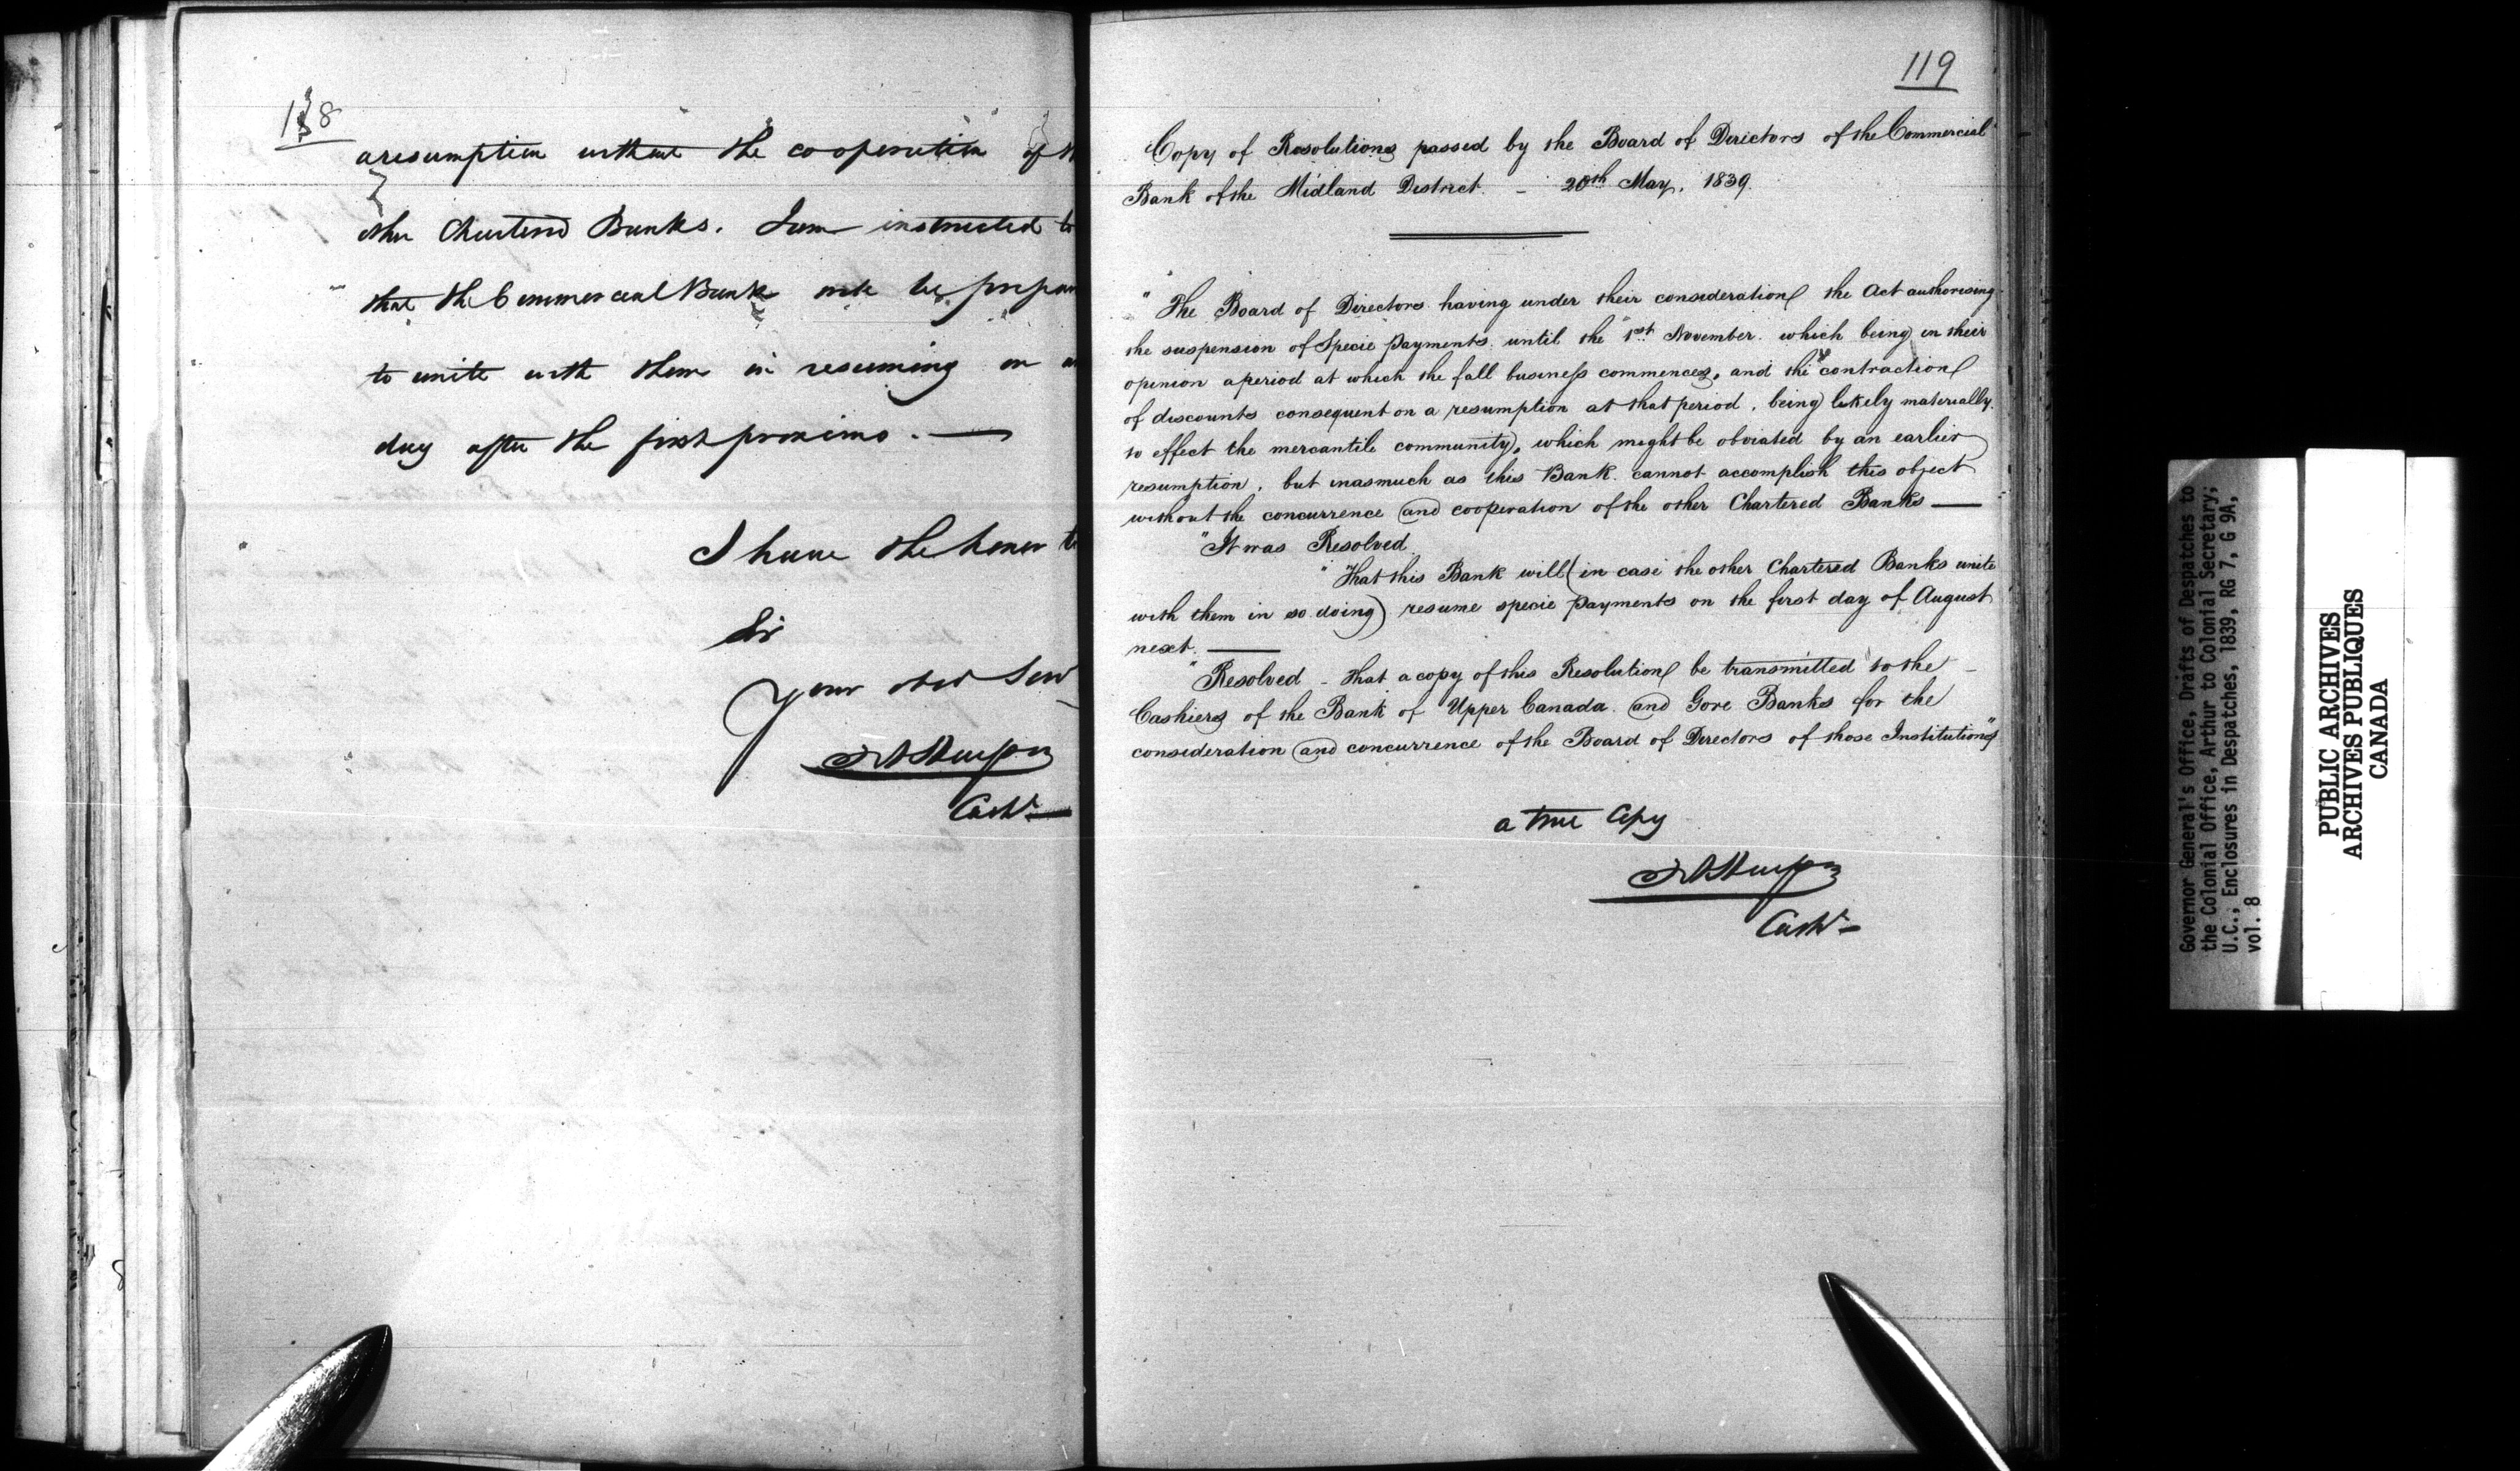 118
a resumption without the cooperation of
other Chartered Banks. I am instructed to
that the Commercial Bank will be
to unite with them in resuming on
day after the first proximo. —
I have the honor to
Sir
Your obed Serv
Cashr —
119
Copy of Resolutions passed by the Board of Directors of the Commercial
Bank of the Midland District. - 20th May, 1839.
"The Board of Directors having under their consideration the Act authorising
the suspension of Specie Payments until the 1st November. which being in their
opinion a period at which the fall business commences, and the contraction
of discounts consequent on a resumption at that period, being likely materially
to effect the mercantile community, which might be obviated by an earlier
resumption, but inasmuch as this Bank cannot accomplish this object
without the concurrence and cooperation of the other Chartered Banks —
"It was Resolved
"That this Bank will (in case the other Chartered Banks unite
with them in so doing) resume specie payments on the first day of August
next. —
"Resolved - That a copy of this Resolution be transmitted to the
Cashiers of the Bank of Upper Canada and Gore Banks for the
consideration and concurrence of the Board of Directors of those Institutions"
a true Copy
Cashr -
Governor General's Office, Drafts of Despatches to
the Colonial Office, Arthur to Colonial Secretary;
U.C., Enclosures in Despatches, 1839, RG 7, G 9A,
vol. 8
PUBLIC ARCHIVES
ARCHIVES PUBLIQUES
CANADA